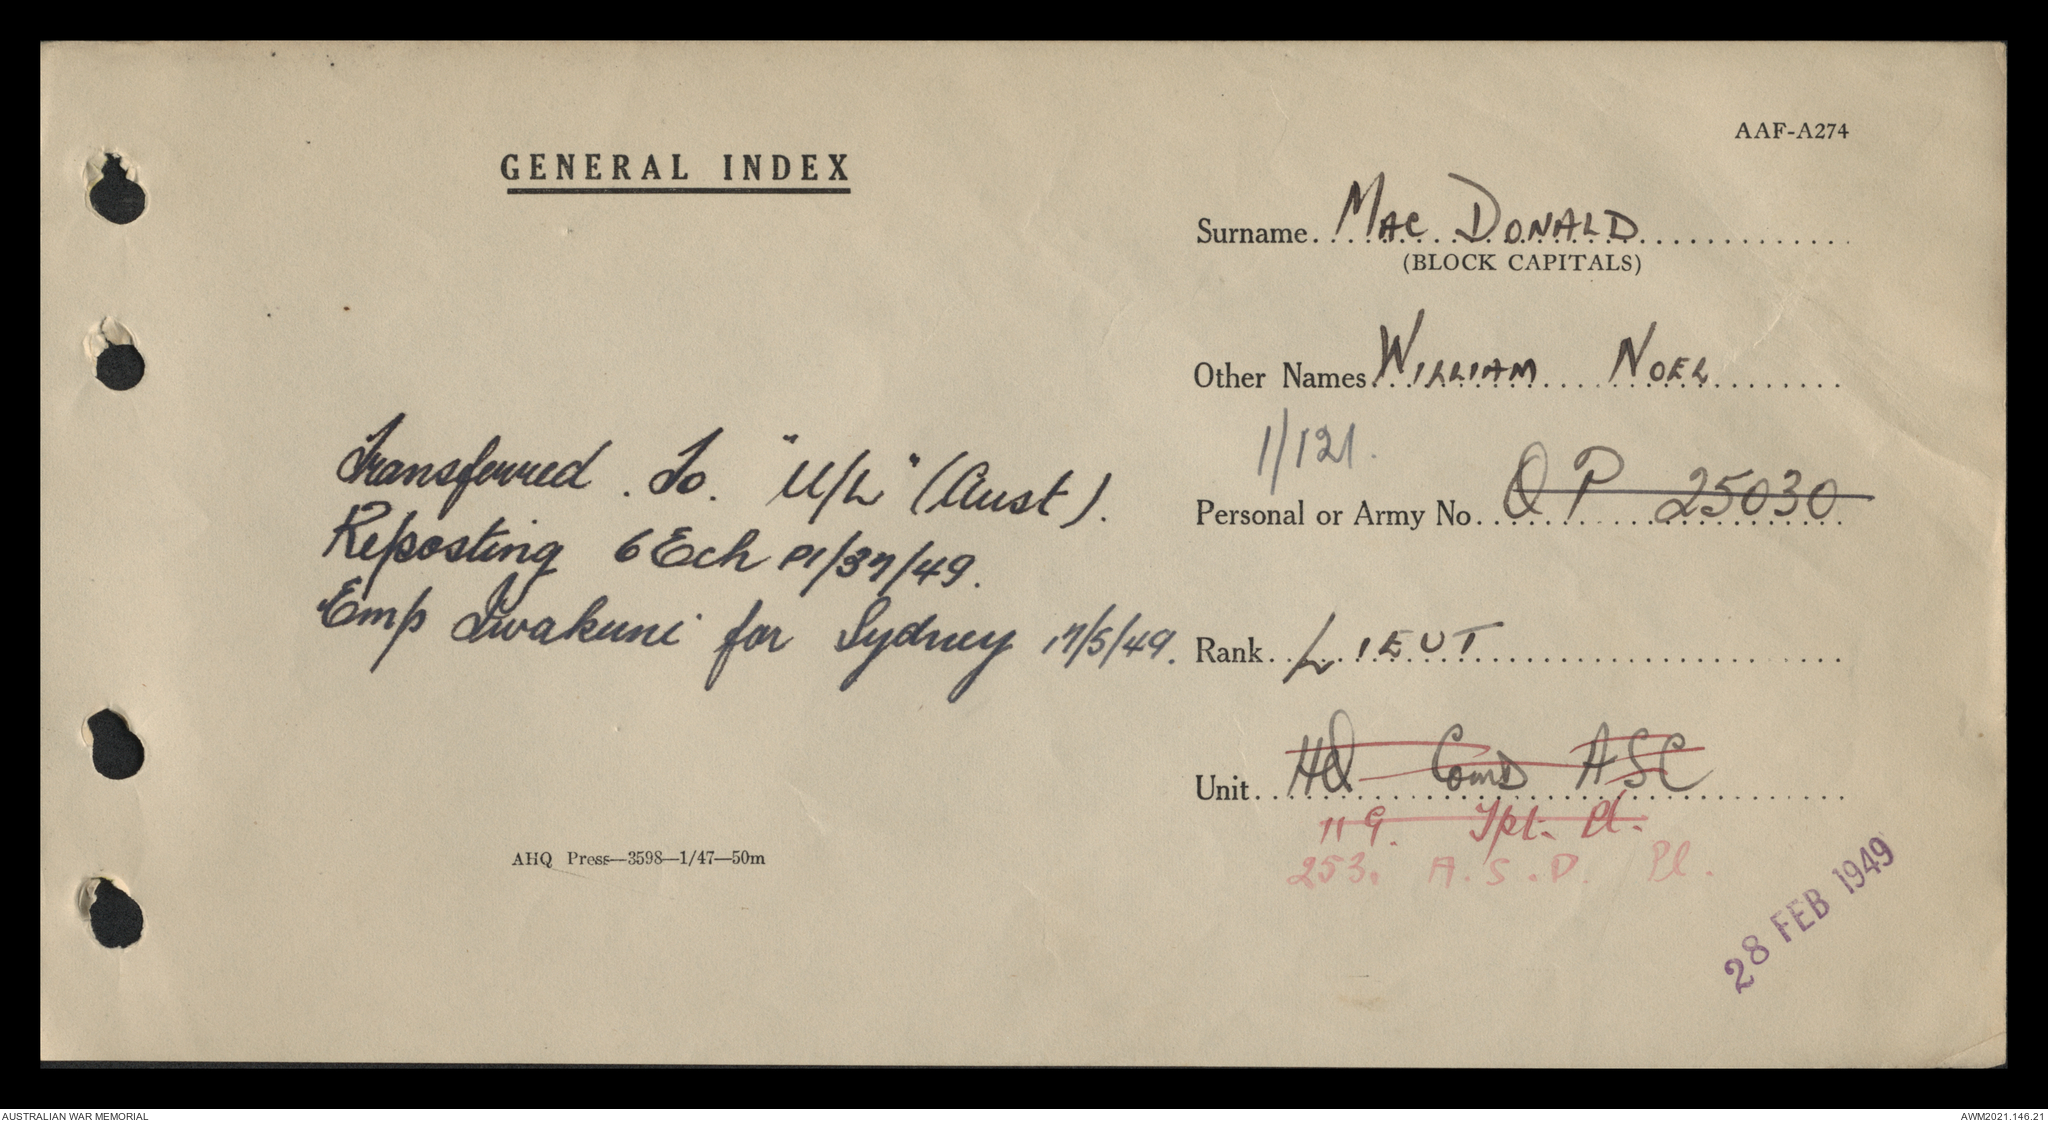 AAF-A274
GENERAL INDEX
Surname MAC DONALD
(BLOCK CAPITALS)
Other Names WILLIAM NOEL
1/121.
Personal or Army No. QP 25030
Rank LIEUT
Unit HQ Comd ASC
119. Tpt. Pl.
253. A.S.D. Pl.
Transferred. To. "U/L" (Aust).
Reposting 6 Ech P1/37/49.
Emp Iwakuni for Sydney 17/5/49.
AHQ Press—3598—1/47—50m
28 FEB 1949
AUSTRALIAN WAR MEMORIAL
AWM2021.146.21